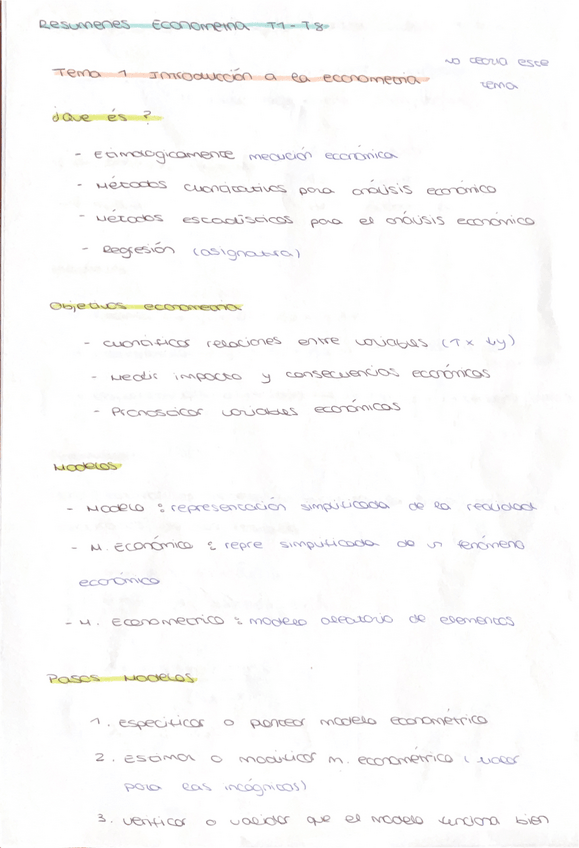 Resumenes Econometria T1-T8
Tema 1 Introducción a la econometria
no teoria este
tema
¿Que és?
- etimologicamente medición económica
- Métodos cuantitativos para análisis económico
- Métodos estadísticos para el análisis económico
- Regresión (asignatura)
Objetivos econometria
- cuantificar relaciones entre variables (↑x ↓y)
- Medir impacto y consecuencias económicas
- Pronosticar variables económicas
Modelos
- Modelo : representación simplificada de la realidad
- M. Económico : repre simplificada de un fenómeno
económico
- M. Econometrico : modelo aleatorio de elementos
Pasos Modelos
1. especificar o plantear modelo econométrico
2. estimar o modificar m. econométrico ( valor
para las incógnitas)
3. verificar o validar que el modelo funciona bien